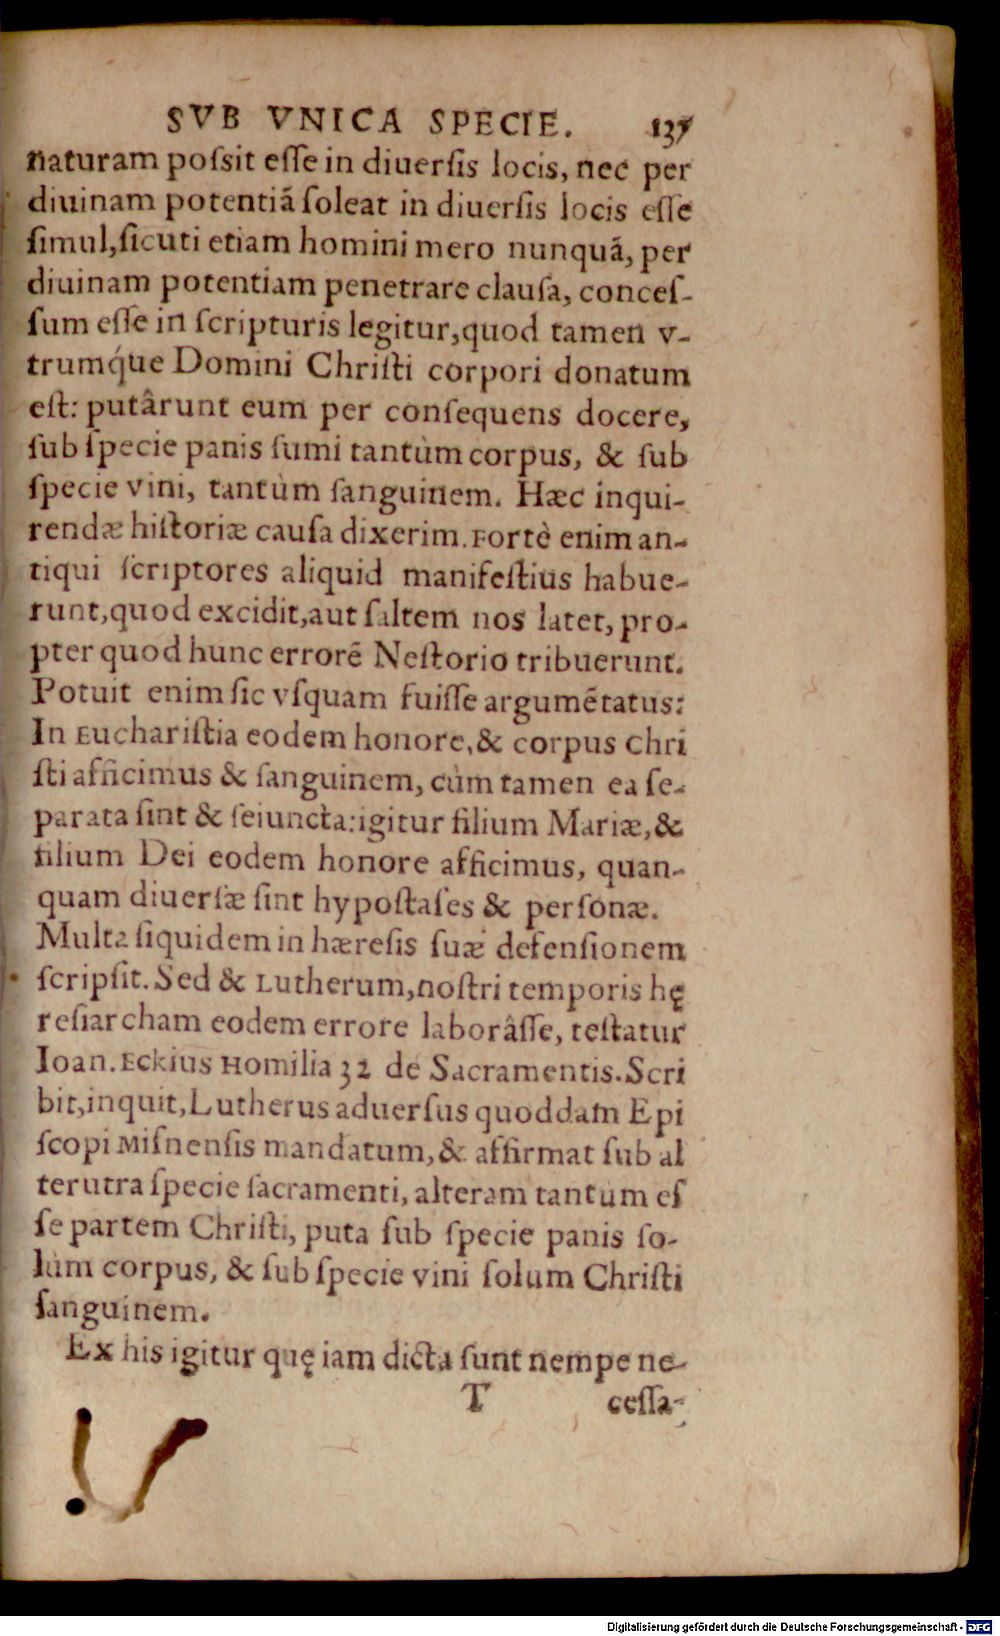 SVB VNICA SPECIE. 137
naturam poſsit eſſe in diuerſis locis, nec per
diuinam potentiã ſoleat in diuerſis locis eſſe
ſimul, ſicuti etiam homini mero nunquã, per
diuinam potentiam penetrare clauſa, conceſ-
ſum eſſe in ſcripturis legitur, quod tamen v-
trumq́ue Domini Chriſti corpori donatum
eſt: putârunt eum per conſequens docere,
ſub ſpecie panis ſumi tantùm corpus, & ſub
ſpecie vini, tantùm ſanguinem. Hæc inqui-
rendæ hiſtoriæ cauſa dixerim. Fortè enim an-
tiqui ſcriptores aliquid manifeſtius habue-
runt, quod excidit, aut ſaltem nos latet, pro-
pter quod hunc errorẽ Neſtorio tribuerunt.
Potuit enim ſic vſquam fuiſſe argumẽtatus:
In Euchariſtia eodem honore, & corpus Chri
ſti afficimus & ſanguinem, cùm tamen ea ſe-
parata ſint & ſeiuncta: igitur filium Mariæ, &
filium Dei eodem honore afficimus, quan-
quam diuerſæ ſint hypoſtaſes & perſonæ.
Multa ſiquidem in hæreſis ſuæ defenſionem
ſcripſit. Sed & Lutherum, noſtri temporis hę
reſiarcham eodem errore laborâſſe, teſtatur
Ioan. Eckius Homilia 32 de Sacramentis. Scri
bit, inquit, Lutherus aduerſus quoddam Epi
ſcopi Miſnenſis mandatum, & affirmat ſub al
terutra ſpecie ſacramenti, alteram tantum eſ
ſe partem Chriſti, puta ſub ſpecie panis ſo-
lùm corpus, & ſub ſpecie vini ſolum Chriſti
ſanguinem.
Ex his igitur quę iam dicta ſunt nempe ne-
T ceſſa-
Digitalisierung gefördert durch die Deutsche Forschungsgemeinschaft - DFG